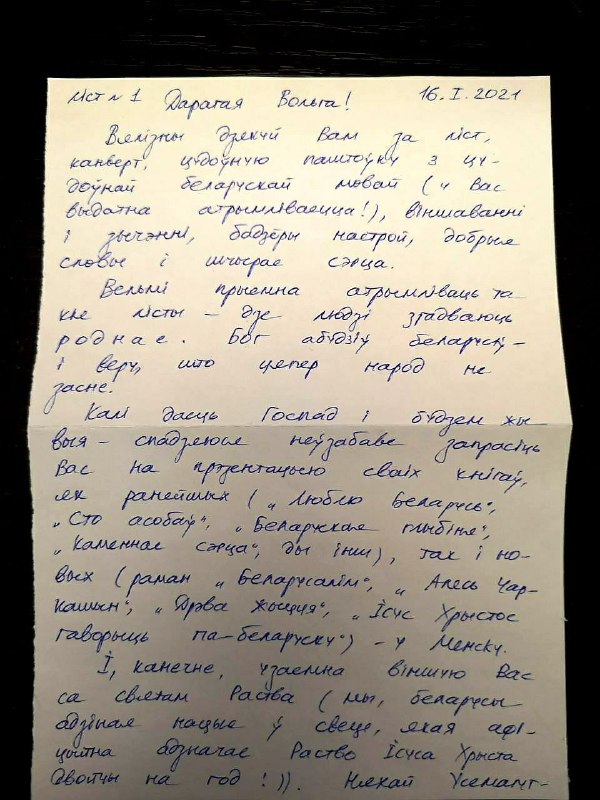 Ліст № 1 Дарагая Вольга! 16.I.2021
Вялізны дзякуй Вам за ліст,
канверт, цудоўную паштоўку з цу-
доўнай беларускай мовай (у Вас
выдатна атрымліваецца!), віншаванні
і зычэнні, бадзёры настрой, добрыя
словы і шчырае сэрца.
Вельмі прыемна атрымліваць та-
кія лісты – дзе людзі згадваюць
роднае. Бог абудзіў беларусаў –
і веру, што цяпер народ не
засне.
Калі дасць Госпад і будзем жы-
выя – спадзяюся неўзабаве запрасіць
Вас на прэзентацыю сваіх кнігаў,
як ранейшых („Люблю Беларусь",
„Сто асобаў", „Беларуская глыбіня",
„Каменнае сэрца", ды інш), так і но-
вых (раман „Беларусалім", „Алесь Чар-
кашын", „Дрэва жыцця", „Ісус Хрыстос
гаворыць па-беларуску") – у Менску.
І, канечне, узаемна віншую Вас
са святам Раства (мы, беларусы
адзіная нацыя ў свеце, якая афі-
цыйна адзначае Раство Ісуса Хрыста
двойчы на год!)). Няхай Усемагут-